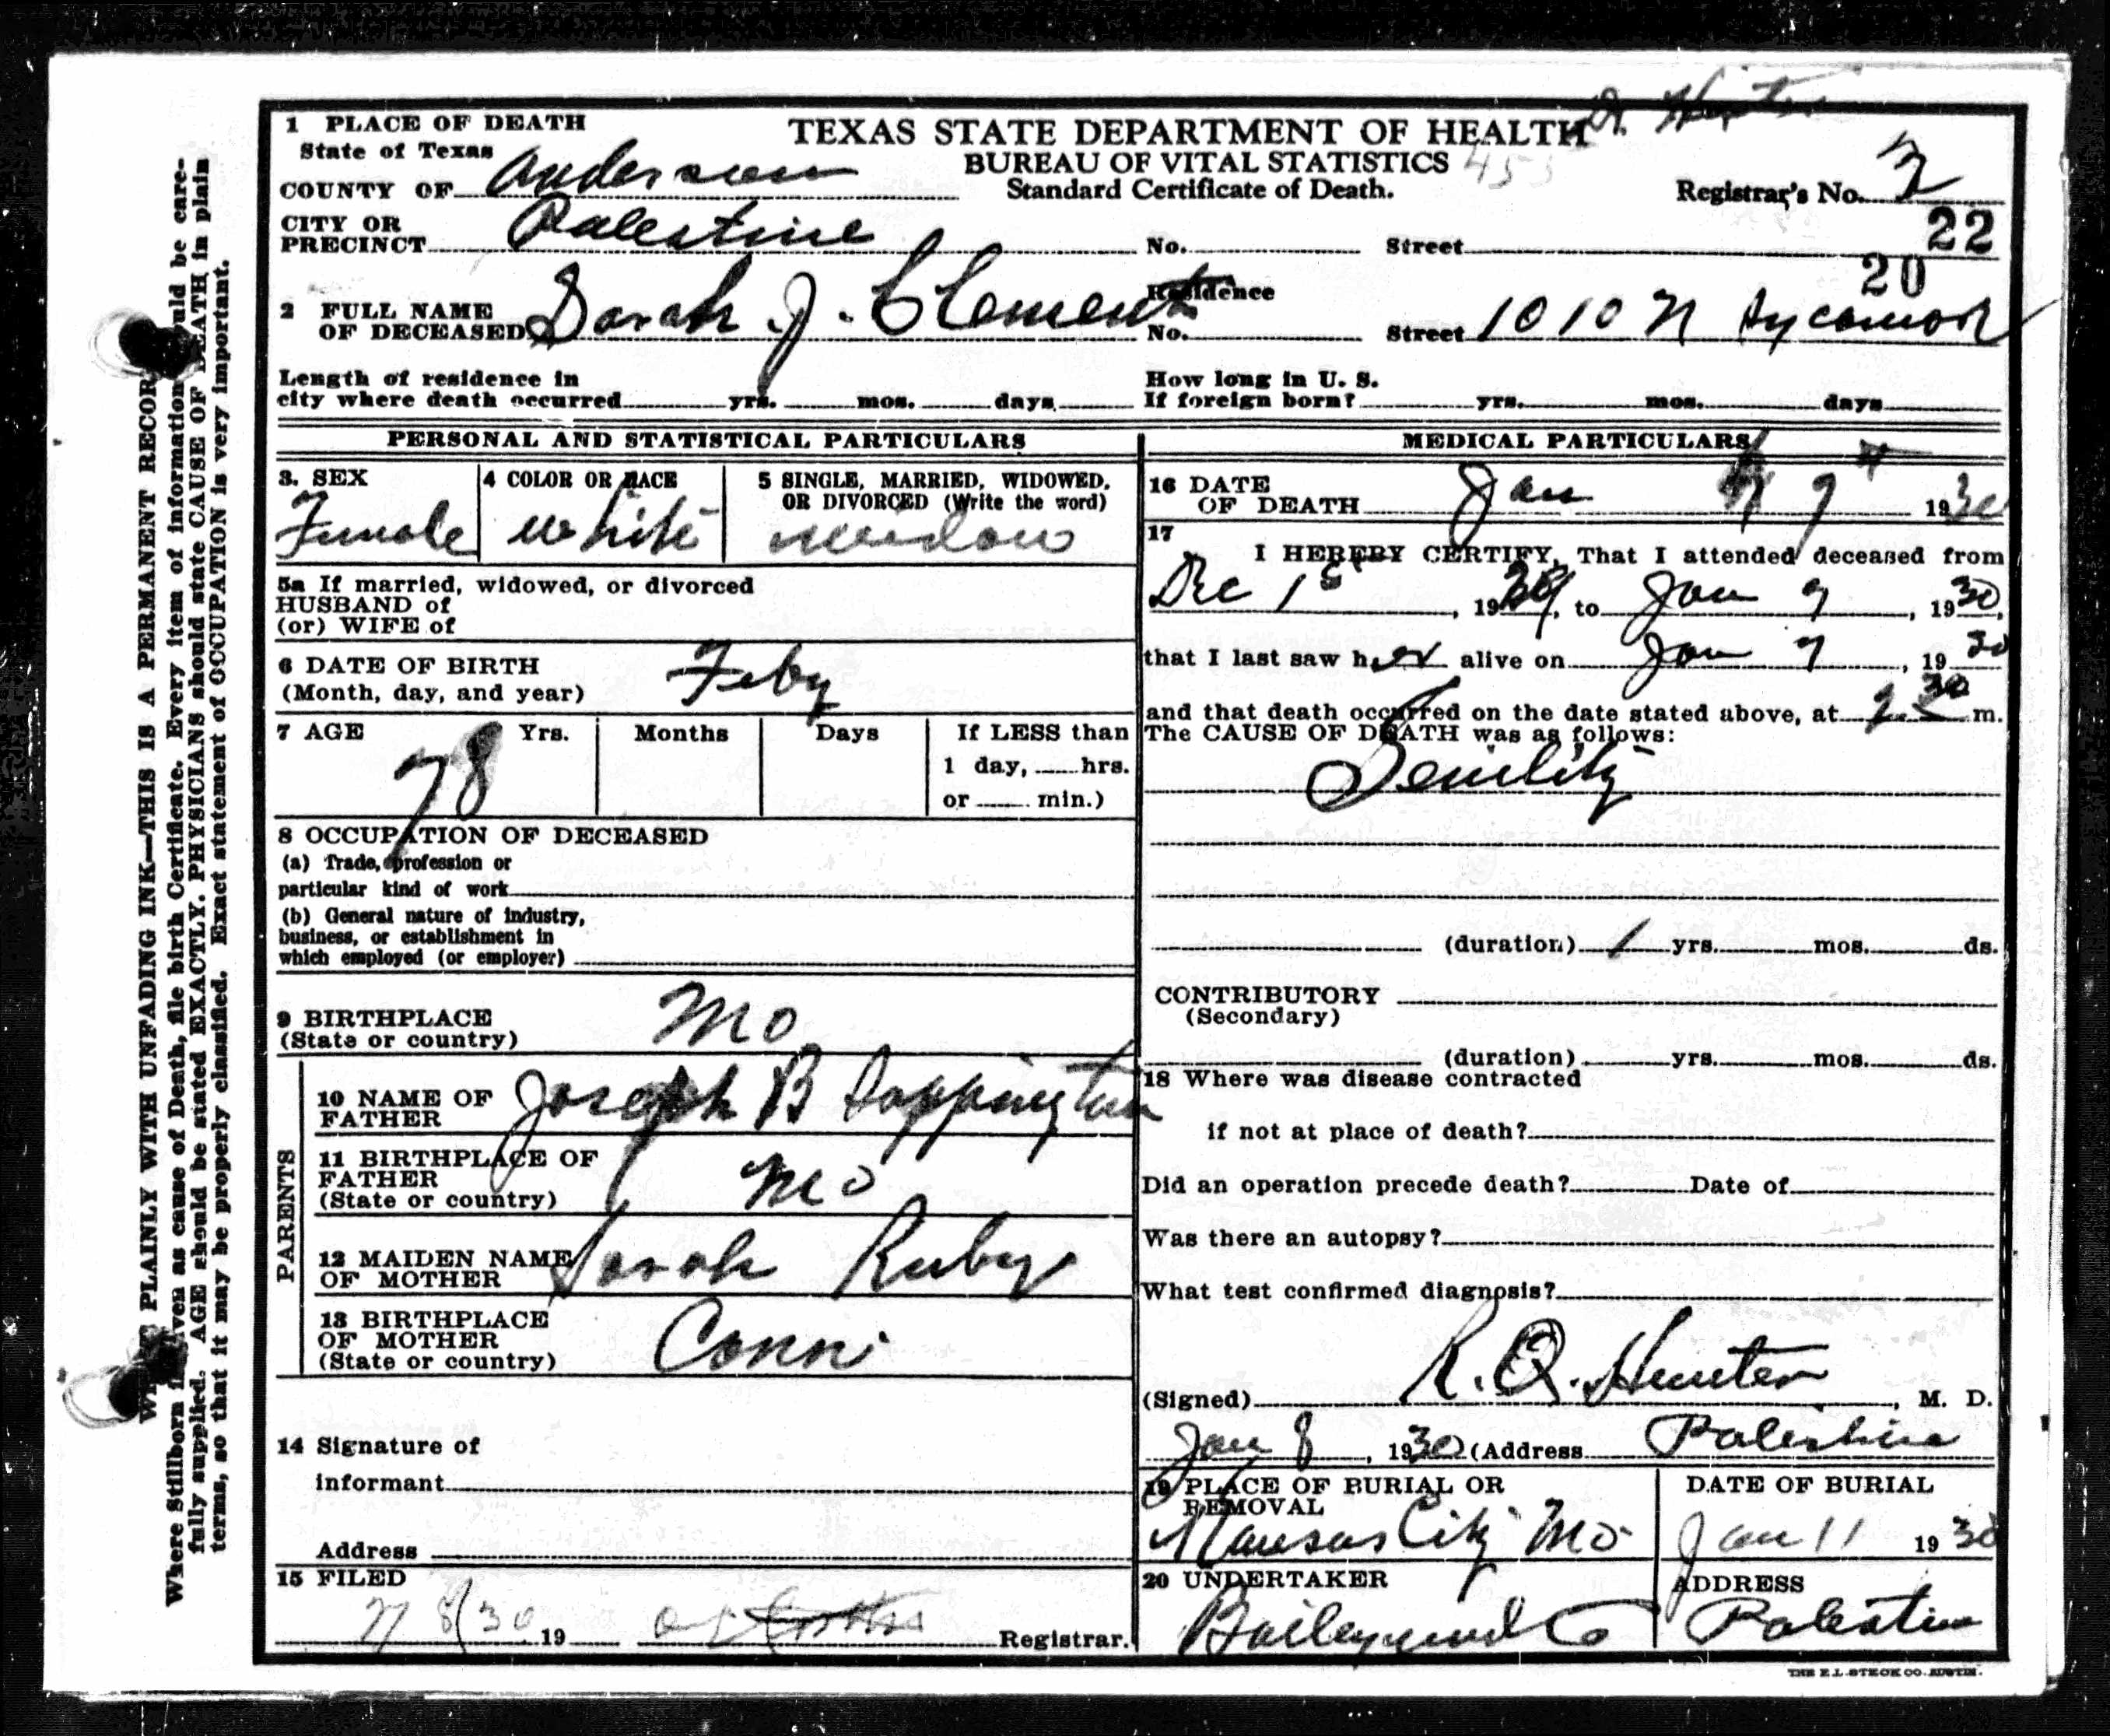 Dr. Hunter
1 PLACE OF DEATH
State of Texas
COUNTY OF Anderson
CITY OR
PRECINCT Palestine
TEXAS STATE DEPARTMENT OF HEALTH
BUREAU OF VITAL STATISTICS 455
Standard Certificate of Death.
Registrar's No.
No. Street 22
20
2 FULL NAME
OF DECEASED Sarah J. Clements
Residence
No. Street 1010 N Sycamore
Length of residence in
city where death occurred yrs. mos. days
How long in U. S.
If foreign born? yrs. mos. days
PERSONAL AND STATISTICAL PARTICULARS
3. SEX
Female
4 COLOR OR RACE
White
5 SINGLE, MARRIED, WIDOWED,
OR DIVORCED (Write the word)
Widow
5a If married, widowed, or divorced
HUSBAND of
(or) WIFE of
6 DATE OF BIRTH
(Month, day, and year) Feby
7 AGE
78 Yrs. Months Days
If LESS than
1 day, hrs.
or min.)
8 OCCUPATION OF DECEASED
(a) Trade, profession or
particular kind of work
(b) General nature of industry,
business, or establishment in
which employed (or employer)
9 BIRTHPLACE
(State or country) Mo
PARENTS
10 NAME OF
FATHER Joseph B Sappington
11 BIRTHPLACE OF
FATHER
(State or country) Mo
12 MAIDEN NAME
OF MOTHER Sarah Ruby
13 BIRTHPLACE
OF MOTHER
(State or country) Conn
14 Signature of
informant
Address
15 FILED
8/30 19 Registrar.
MEDICAL PARTICULARS
16 DATE
OF DEATH Jan 7 1930
17
I HEREBY CERTIFY, That I attended deceased from
Dec 1st, 1929, to Jan 7, 1930,
that I last saw her alive on Jan 7, 1930
and that death occurred on the date stated above, at m.
The CAUSE OF DEATH was as follows:
Senility
(duration) 1 yrs. mos. ds.
CONTRIBUTORY
(Secondary)
(duration) yrs. mos. ds.
18 Where was disease contracted
if not at place of death?
Did an operation precede death? Date of
Was there an autopsy?
What test confirmed diagnosis?
(Signed) R. Q. Hunter, M. D.
Jan 8, 1930 (Address Palestine
19 PLACE OF BURIAL OR
REMOVAL
Kansas City Mo
DATE OF BURIAL
Jan 11 1930
20 UNDERTAKER
Bailey and Co
ADDRESS
Palestine
THE E.L. STECK CO. AUSTIN.
PLAINLY WITH UNFADING INK—THIS IS A PERMANENT RECORD
Where Stillborn is given as cause of Death, file birth Certificate. Every item of information should be care-
fully supplied. AGE should be stated EXACTLY. PHYSICIANS should state CAUSE OF DEATH in plain
terms, so that it may be properly classified. Exact statement of OCCUPATION is very important.